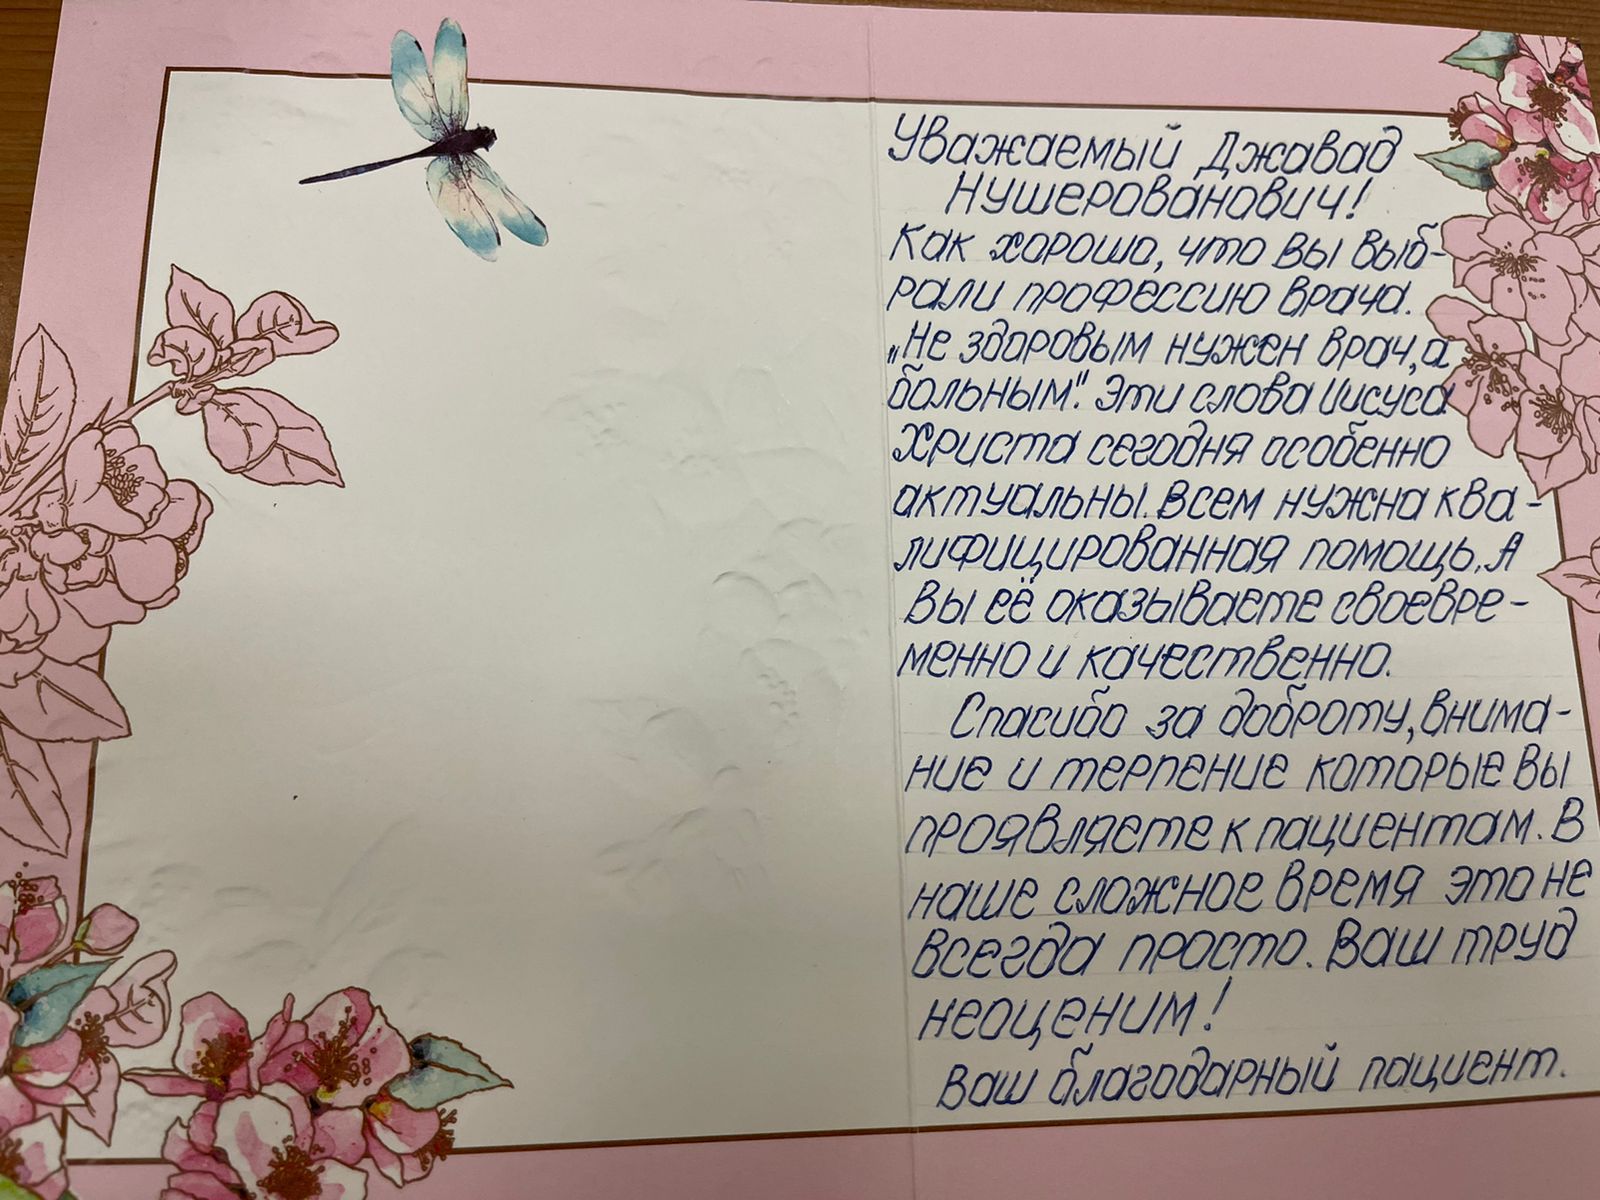 Уважаемый Джавад
Нушерованович!
Как хорошо, что Вы выб-
рали профессию врача.
„Не здоровым нужен врач, а
больным". Эти слова Иисуса
Христа сегодня особенно
актуальны. Всем нужна ква-
лифицированная помощь. А
Вы её оказываете своевре-
менно и качественно.
Спасибо за доброту, внима-
ние и терпение которые Вы
проявляете к пациентам. В
наше сложное время это не
всегда просто. Ваш труд
неоценим!
Ваш благодарный пациент.